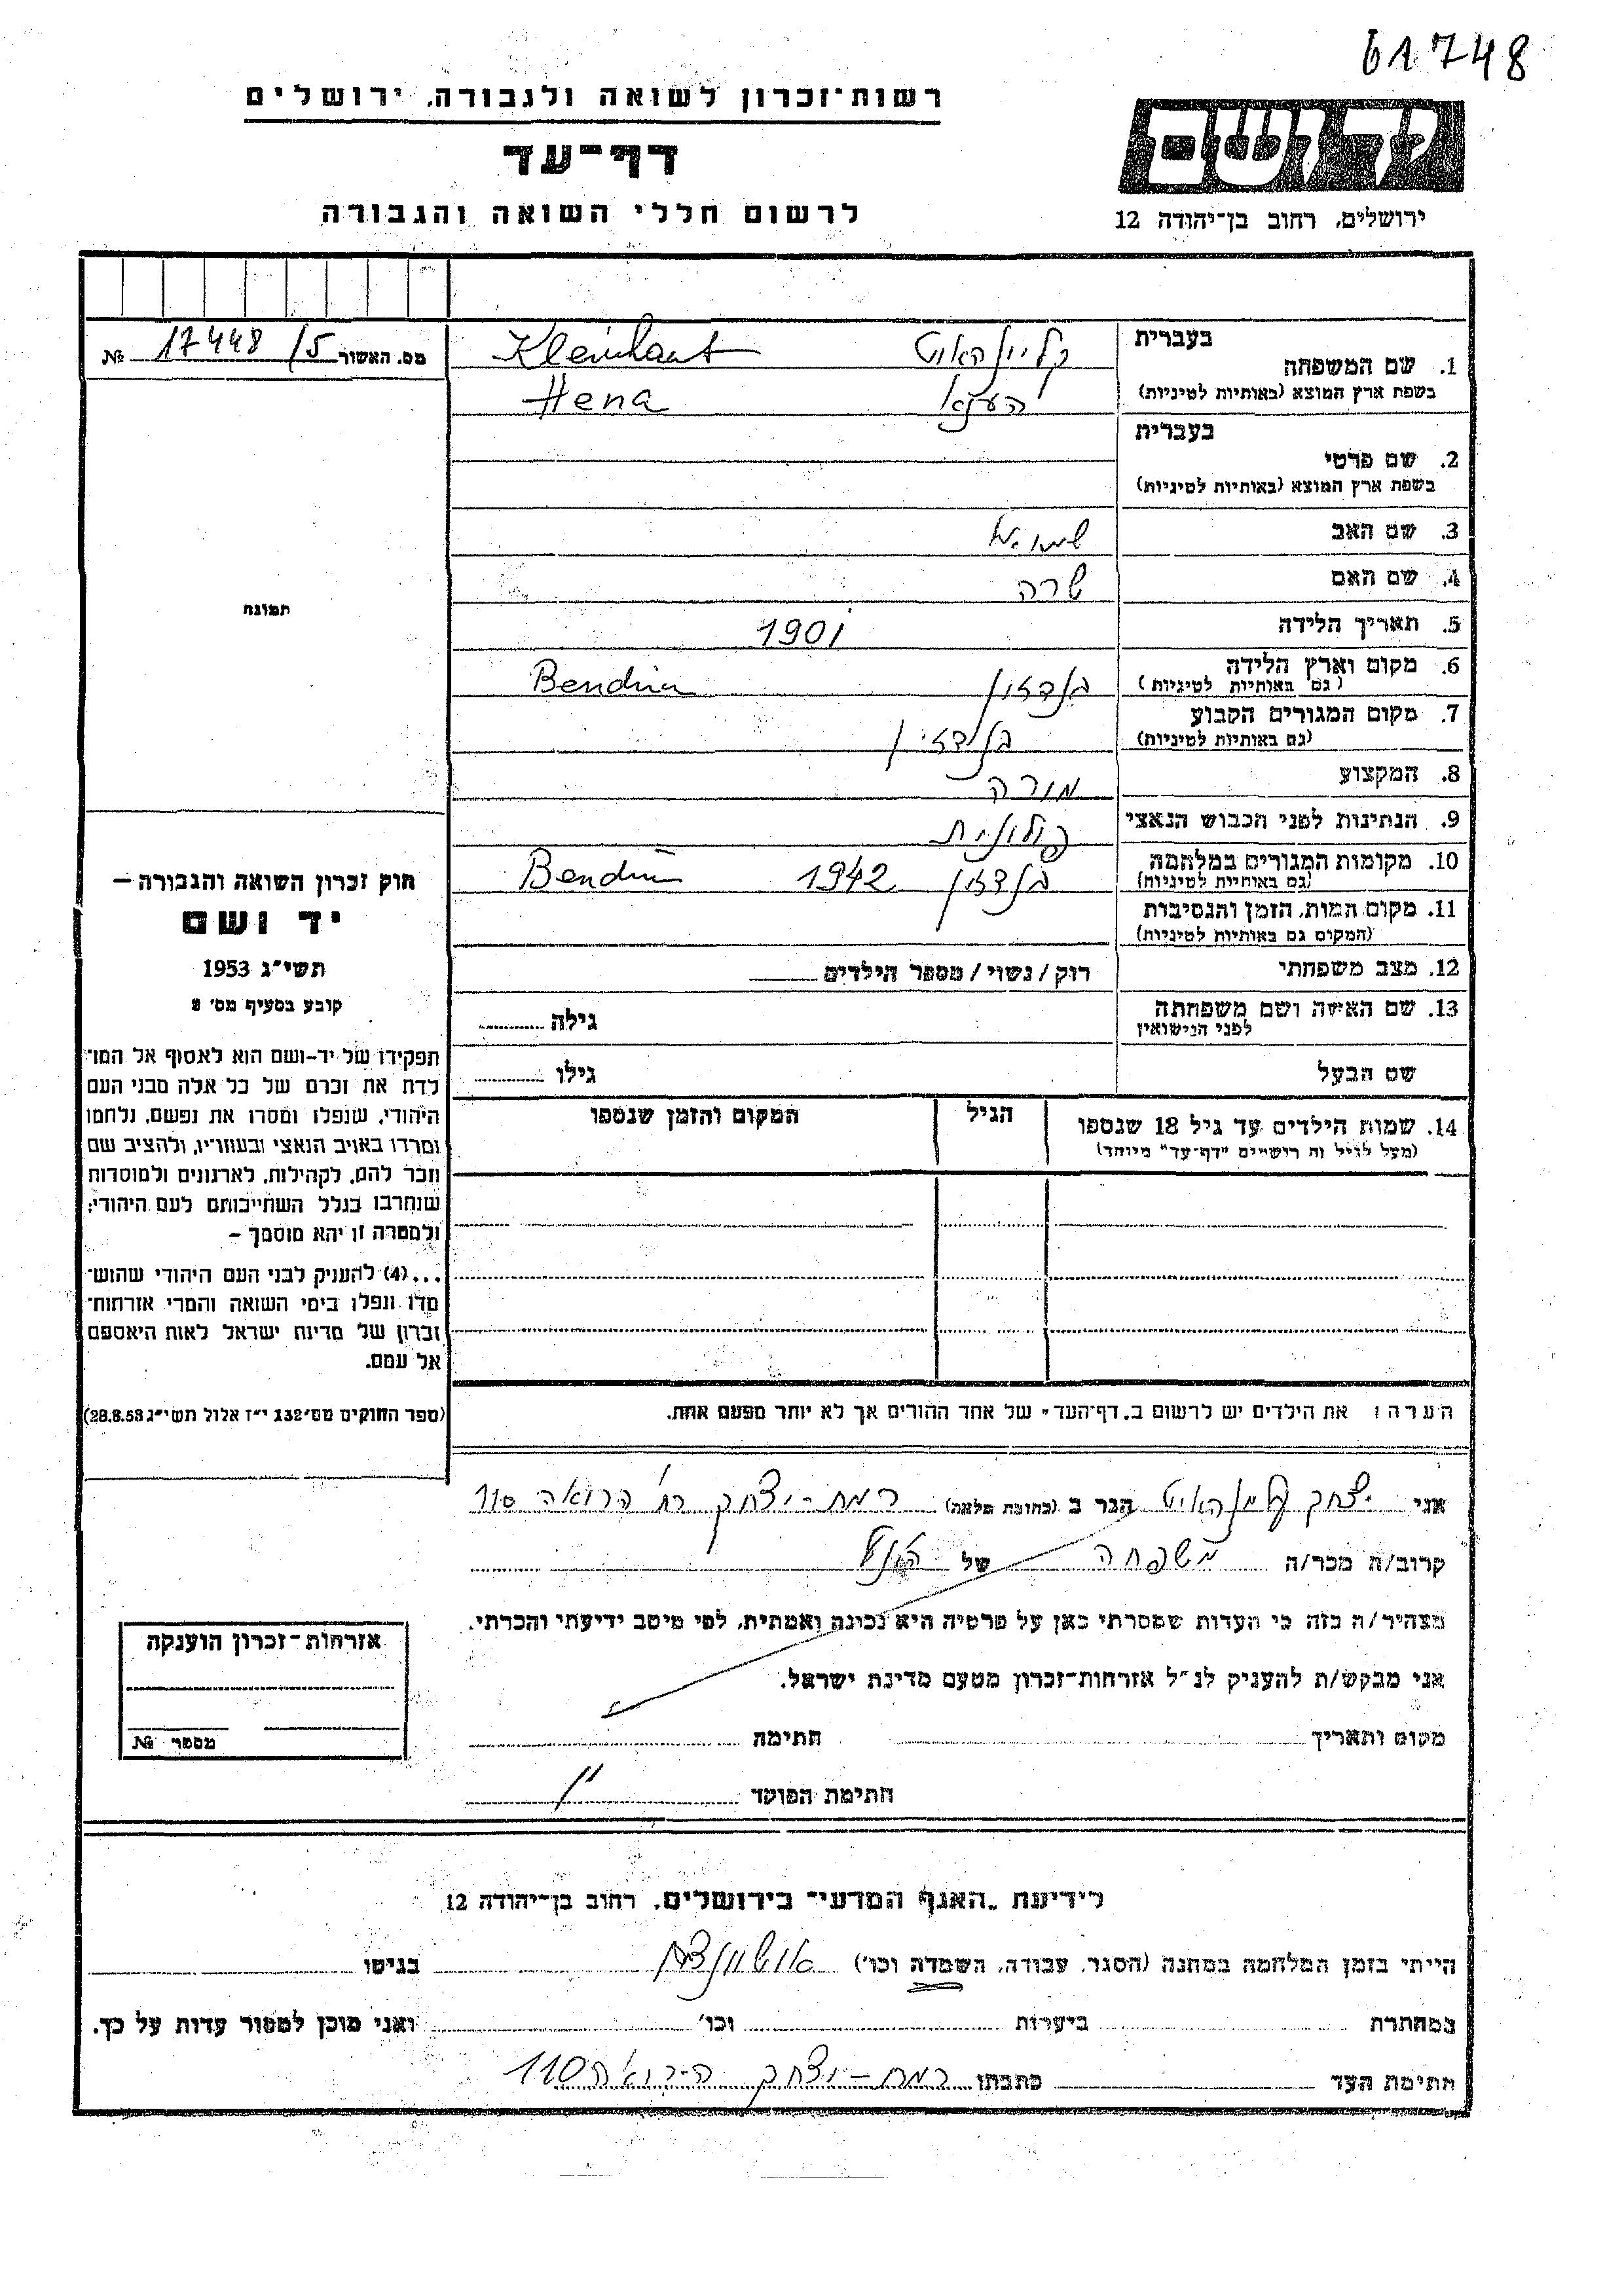 61748
רשות־זכרון לשואה ולגבורה, ירושלים
דף־עד
לרשום חללי השואה והגבורה
ידושם
ירושלים, רחוב בן־יהודה 12
מס. האשור 17448/5 №
בעברית
1. שם המשפחה
בשפת ארץ המוצא (באותיות לטיניות)
קליינהאוט Kleinhaut
הענא Hena
בעברית
2. שם פרטי
בשפת ארץ המוצא (באותיות לטיניות)
3. שם האב
4. שם האם שרה
5. תאריך הלידה 1901
6. מקום וארץ הלידה
(גם באותיות לטיניות)
בנדזין Bendin
7. מקום המגורים הקבוע
(גם באותיות לטיניות)
בנדזין
8. המקצוע מורה
9. הנתינות לפני הכבוש הנאצי פולונית
10. מקומות המגורים במלחמה
(גם באותיות לטיניות)
בנדזין 1942 Bendin
11. מקום המות, הזמן והנסיבות
(המקום גם באותיות לטיניות)
12. מצב משפחתי רוק/נשוי/מספר הילדים
13. שם האישה ושם משפחתה
לפני הנישואין
גילה
שם הבעל גילו
14. שמות הילדים עד גיל 18 שנספו
(מעל לגיל זה רושמים "דף־עד" מיוחד)
הגיל
המקום והזמן שנספו
תמונה
חוק זכרון השואה והגבורה –
יד ושם
תשי"ג 1953
קובע בסעיף מס' 2
תפקידו של יד-ושם הוא לאסוף אל המו־
לדת את זכרם של כל אלה מבני העם
היהודי, שנפלו ומסרו את נפשם, נלחמו
ומרדו באויב הנאצי ובעוזריו, ולהציב שם
וזכר להם, לקהילות, לארגונים ולמוסדות
שנחרבו בגלל השתייכותם לעם היהודי;
ולמטרה זו יהא מוסמך –
...(4) להעניק לבני העם היהודי שהוש־
מדו ונפלו בימי השואה והמרי אזרחות־
זכרון של מדינת ישראל לאות היאספם
אל עמם.
(ספר החוקים מס' 132 י"ז אלול תשי"ג 28.8.53)
הערה: את הילדים יש לרשום ב„דף־העד" של אחד ההורים אך לא יותר מפעם אחת.
אני יצחק קליינהאוט הגר ב (כתובת מלאה) רמת-יצחק רח' הרואה 110
קרוב/ה מכר/ה משפחה של הנ"ל
מצהיר/ה בזה כי העדות שמסרתי כאן על פרטיה היא נכונה ואמתית, לפי מיטב ידיעתי והכרתי.
אני מבקש/ת להעניק לנ"ל אזרחות־זכרון מטעם מדינת ישראל.
מקום ותאריך חתימה
חתימת הפוקד
אזרחות־זכרון הוענקה
מספר №
לידיעת „האגף המדעי" בירושלים, רחוב בן־יהודה 12
הייתי בזמן המלחמה במחנה (הסגר, עבודה, השמדה וכו') אושוונצים בגיטו
במחתרת ביערות וכו' ואני מוכן למסור עדות על כך.
חתימת העד כתבתו רמת-יצחק הרואה 110